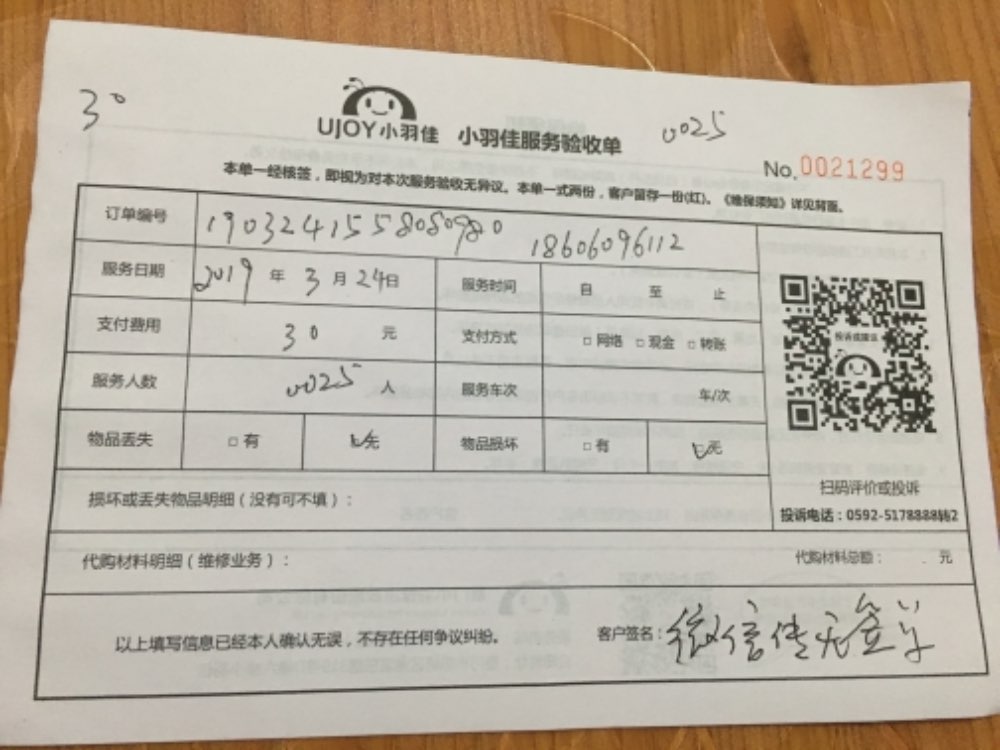 30
UJOY小羽佳 小羽佳服务验收单
0025
No.0021299
本单一经核签，即视为对本次服务验收无异议。本单一式两份，客户留存一份(红)。《维保须知》详见背面。
订单编号 1903241558080980 18606096112
服务日期 2019年3月24日 服务时间 自 至 止
支付费用 30 元 支付方式 □网络 □现金 □转账
服务人数 0025 人 服务车次 车/次
物品丢失 □有 □无 物品损坏 □有 □无
投诉或建议
扫码评价或投诉
投诉电话：0592-5178888转2
损坏或丢失物品明细（没有可不填）：
代购材料明细（维修业务）： 代购材料总额： 元
以上填写信息已经本人确认无误，不存在任何争议纠纷。 客户签名：微信传无签单